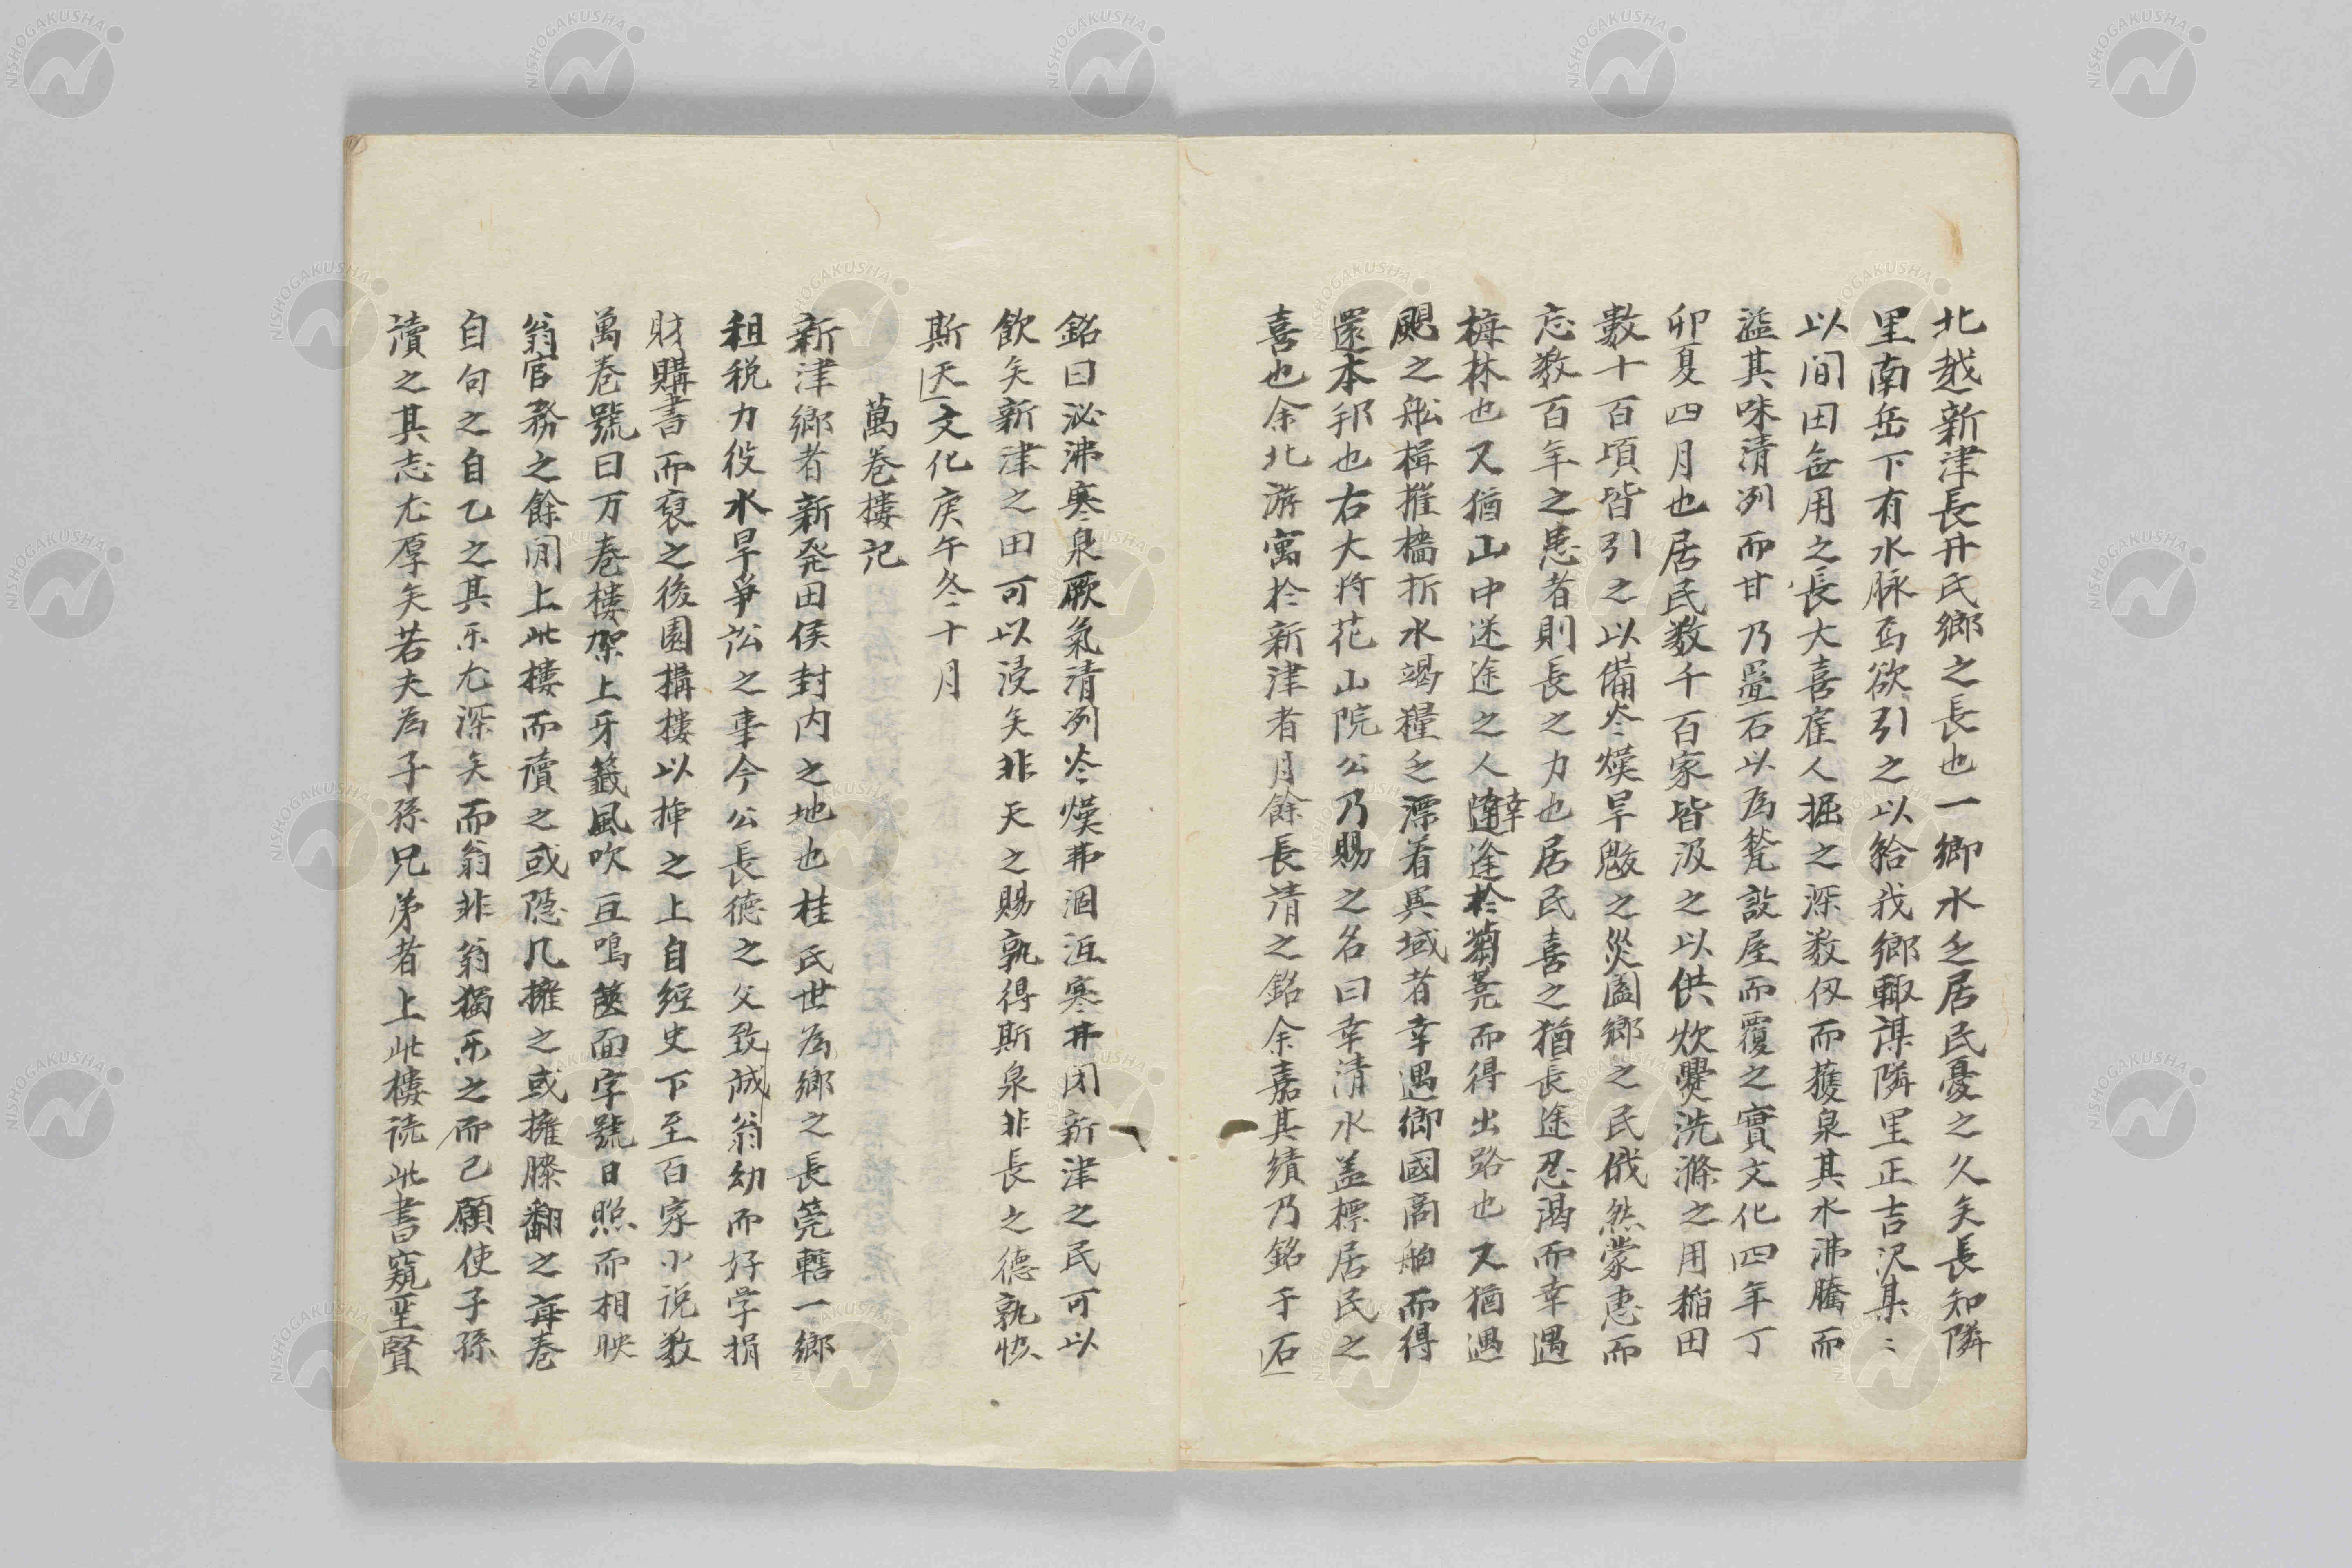 北越新津長井氏鄉之長也一鄉水乏居民憂之久矣長知隣
里南岳下有水脉焉欲引之以給我鄉輙謀隣里正吉沢某〻
以间田無用之長大喜雇人掘之深数仭而獲泉其水沸騰而
溢其味清冽而甘乃疊石以為甃設屋而覆之實文化四年丁
卯夏四月也居民数千百家皆汲之以供炊爨洗滌之用稲田
數十百頃皆引之以備炎熯旱魃之災闔鄉之民俄然蒙惠而
忘数百年之患者則長之力也居民喜之猶長途忍渇而幸遇
梅林也又猶山中迷途之人幸逢於蒭蕘而得出路也又猶遇
颶之舩楫摧檣折水竭糧乏漂着異域者幸遇鄉國商舶而得
還本邦也右大将花山院公乃賜之名曰幸清水盖標居民之
喜也余北游寓於新津者月餘長請之銘余嘉其績乃銘于石
銘曰泌沸寒泉厥氣清冽炎熯弗涸沍寒弗闭新津之民可以
飲矣新津之田可以浸矣非天之賜孰得斯泉非長之德孰恢
斯天文化庚午冬十月
萬卷樓記
新津鄉者新発田侯封内之地也桂氏世為鄉之長筦轄一鄉
租税力役水旱爭訟之事今公長德之父致誠翁幼而好学捐
財購書而裒之後園搆樓以挿之上自經史下至百家小说数
萬卷號曰万卷樓架上牙籤風吹互鳴篋面字號日照而相映
翁官務之餘间上此樓而讀之或隐几擁之或擁膝翻之每卷
自句之自乙之其乐尤深矣而翁非翁獨乐之而已願使子孫
讀之其志尤厚矣若夫為子孫兄弟者上此樓読此書窺聖賢